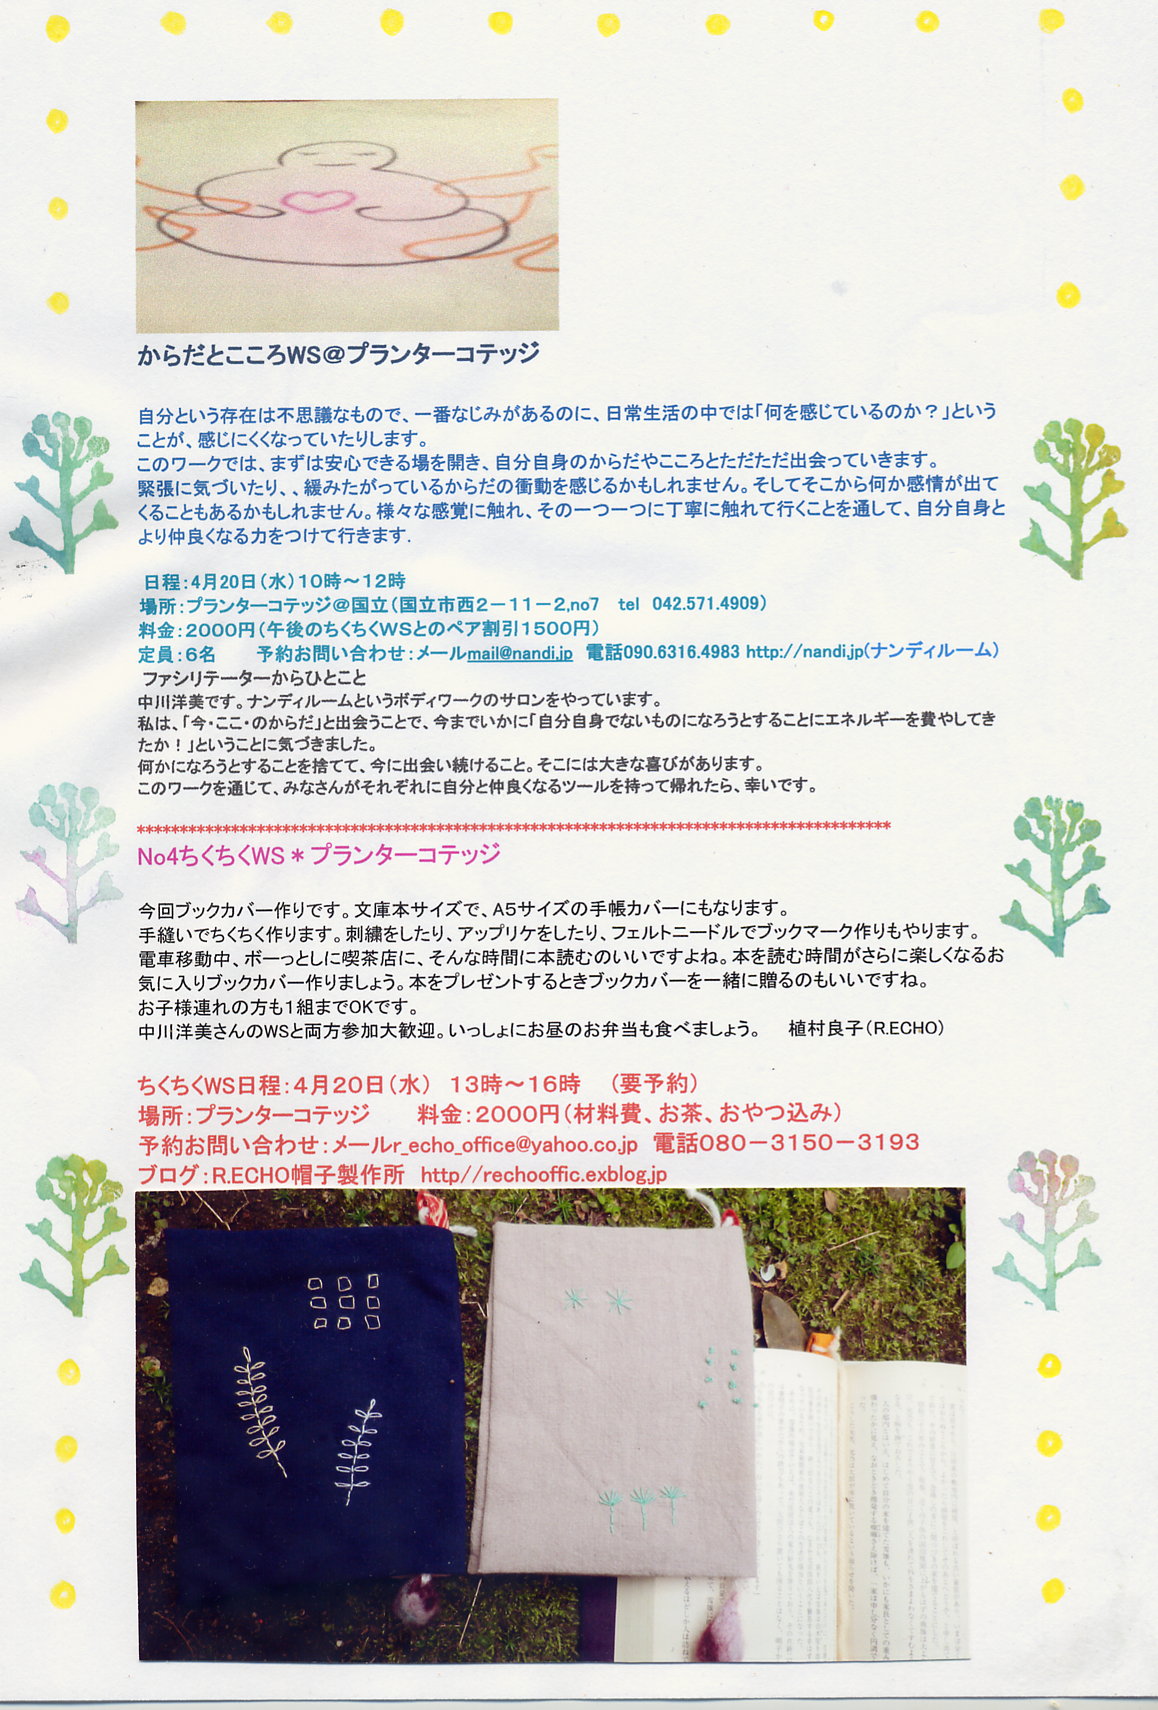 からだとこころWS@プランターコテッジ
自分という存在は不思議なもので、一番なじみがあるのに、日常生活の中では「何を感じているのか？」という
ことが、感じにくくなっていたりします。
このワークでは、まずは安心できる場を開き、自分自身のからだやこころとただただ出会っていきます。
緊張に気づいたり、、緩みたがっているからだの衝動を感じるかもしれません。そしてそこから何か感情が出て
くることもあるかもしれません。様々な感覚に触れ、その一つ一つに丁寧に触れて行くことを通して、自分自身と
より仲良くなる力をつけて行きます.
日程：4月20日（水）１０時～１２時
場所：プランターコテッジ＠国立（国立市西２－１１－２,no7　tel　042.571.4909）
料金：２０００円（午後のちくちくＷＳとのペア割引１５００円）
定員：６名　　予約お問い合わせ：メールmail@nandi.jp　電話090.6316.4983 http://nandi.jp（ナンディルーム）
ファシリテーターからひとこと
中川洋美です。ナンディルームというボディワークのサロンをやっています。
私は、「今・ここ・のからだ」と出会うことで、今までいかに「自分自身でないものになろうとすることにエネルギーを費やしてき
たか！」ということに気づきました。
何かになろうとすることを捨てて、今に出会い続けること。そこには大きな喜びがあります。
このワークを通じて、みなさんがそれぞれに自分と仲良くなるツールを持って帰れたら、幸いです。
******************************************************************************************
No4ちくちくWS＊プランターコテッジ
今回ブックカバー作りです。文庫本サイズで、A５サイズの手帳カバーにもなります。
手縫いでちくちく作ります。刺繍をしたり、アップリケをしたり、フェルトニードルでブックマーク作りもやります。
電車移動中、ボーっとしに喫茶店に、そんな時間に本読むのいいですよね。本を読む時間がさらに楽しくなるお
気に入りブックカバー作りましょう。本をプレゼントするときブックカバーを一緒に贈るのもいいですね。
お子様連れの方も１組までOKです。
中川洋美さんのWSと両方参加大歓迎。いっしょにお昼のお弁当も食べましょう。　植村良子（R.ECHO）
ちくちくWS日程：４月２０日（水）　１３時～１６時　（要予約）
場所：プランターコテッジ　　料金：２０００円（材料費、お茶、おやつ込み）
予約お問い合わせ：メールr_echo_office@yahoo.co.jp　電話０８０－３１５０－３１９３
ブログ：R.ECHO帽子製作所　http//rechooffic.exblog.jp